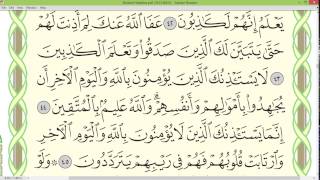 يَعْلَمُ إِنَّهُمْ لَكَٰذِبُونَ ٤٢ عَفَا ٱللَّهُ عَنكَ لِمَ أَذِنتَ لَهُمْ
حَتَّىٰ يَتَبَيَّنَ لَكَ ٱلَّذِينَ صَدَقُوا۟ وَتَعْلَمَ ٱلْكَٰذِبِينَ
٤٣ لَا يَسْتَـْٔذِنُكَ ٱلَّذِينَ يُؤْمِنُونَ بِٱللَّهِ وَٱلْيَوْمِ ٱلْءَاخِرِ أَن
يُجَٰهِدُوا۟ بِأَمْوَٰلِهِمْ وَأَنفُسِهِمْ ۗ وَٱللَّهُ عَلِيمٌۢ بِٱلْمُتَّقِينَ ٤٤
إِنَّمَا يَسْتَـْٔذِنُكَ ٱلَّذِينَ لَا يُؤْمِنُونَ بِٱللَّهِ وَٱلْيَوْمِ ٱلْءَاخِرِ
وَٱرْتَابَتْ قُلُوبُهُمْ فَهُمْ فِى رَيْبِهِمْ يَتَرَدَّدُونَ ٤٥ وَلَوْ